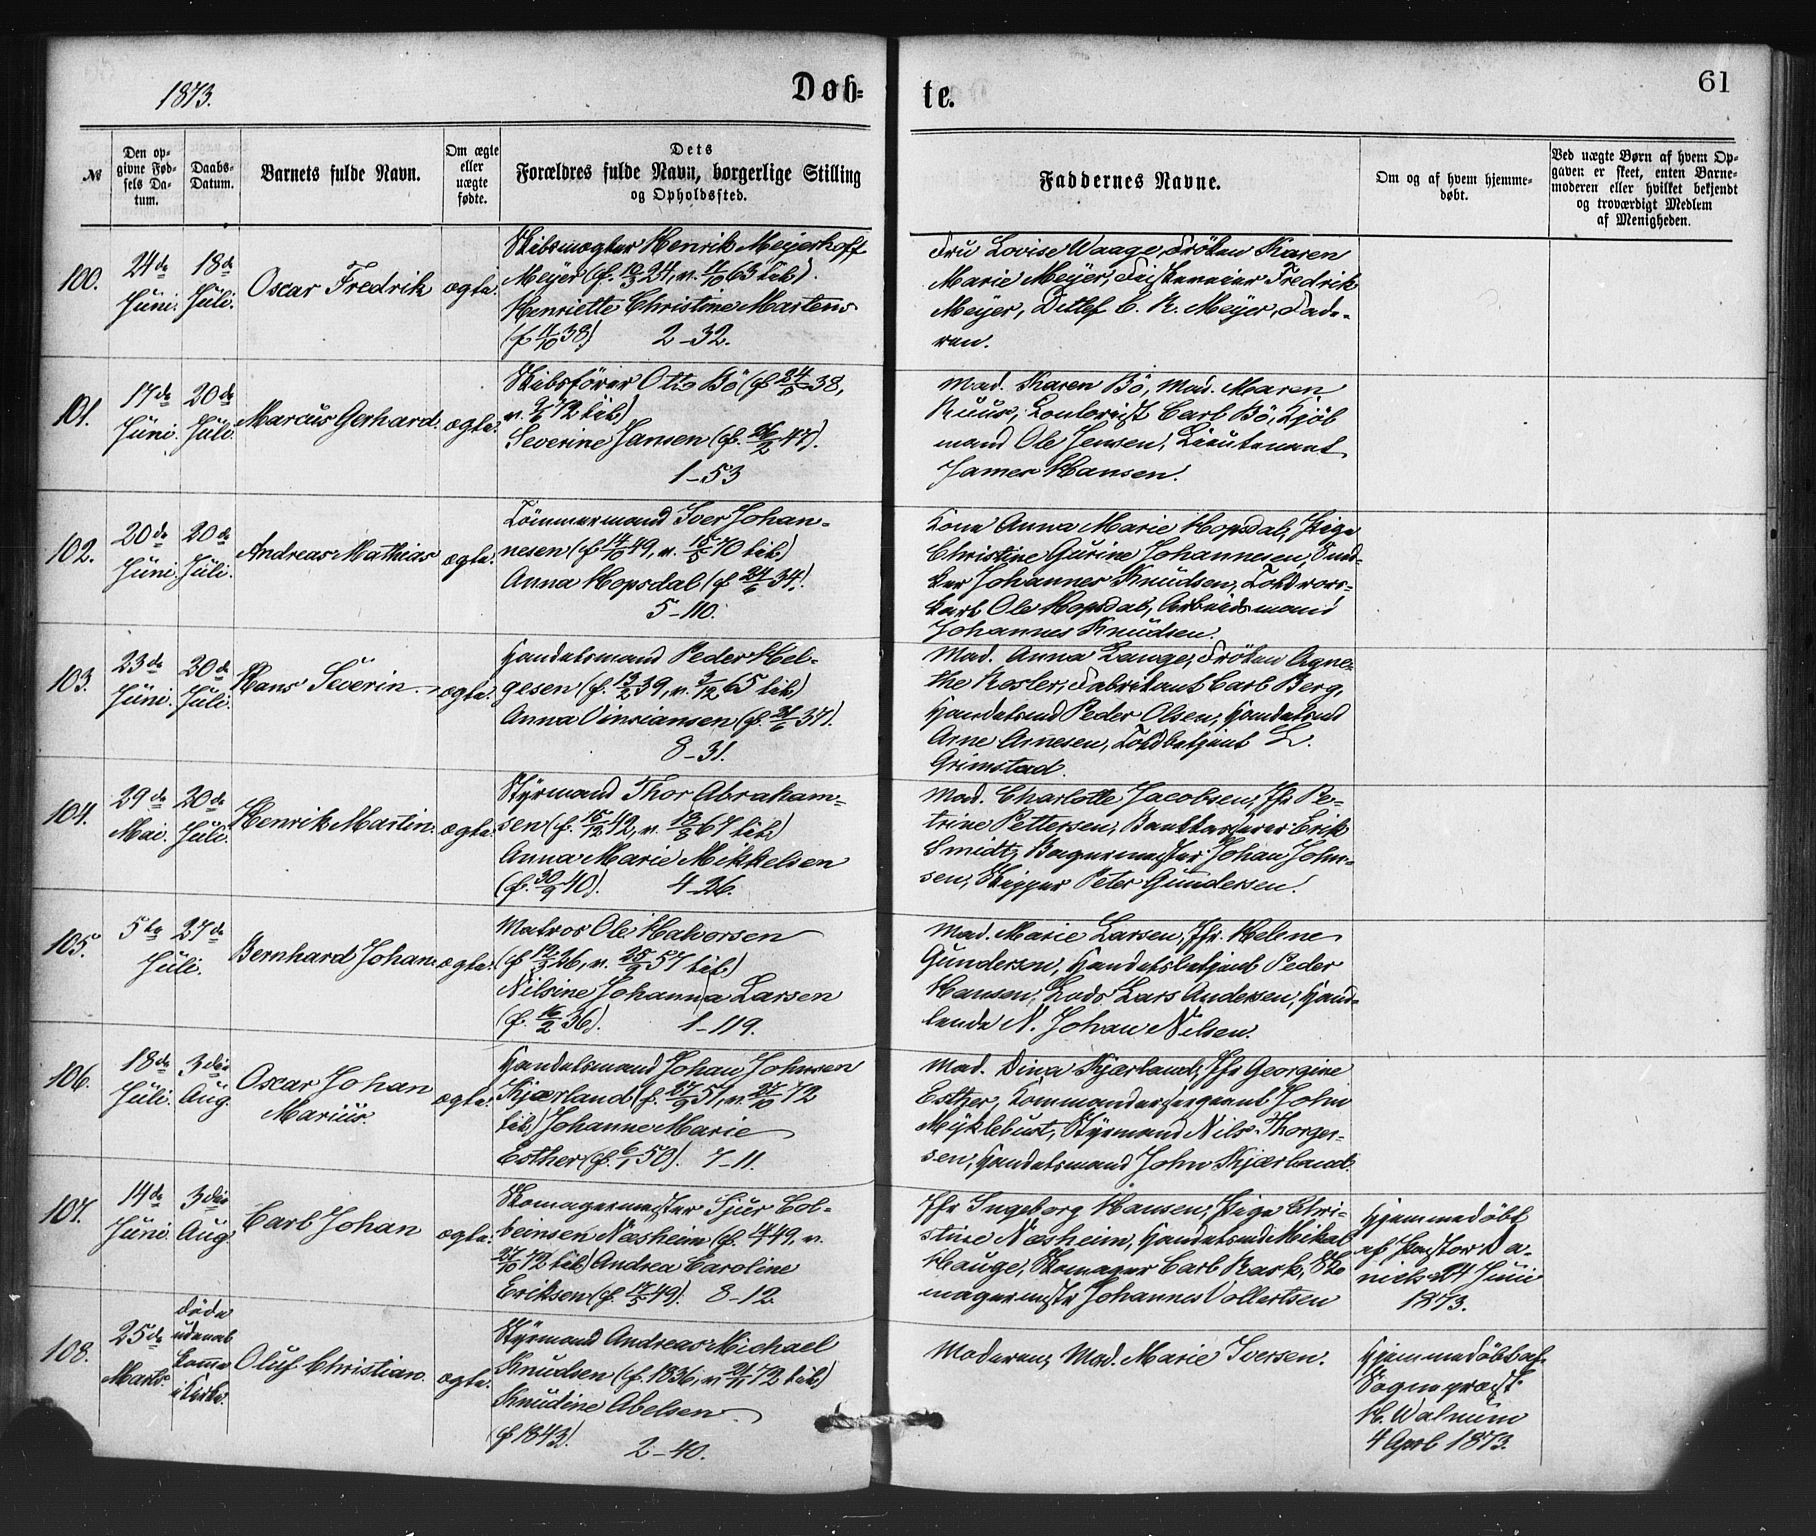 1873.
Døb-
te.
61
№
Den op-
givne Fød-
sels Da-
tum.
Daabs-
Datum.
Barnets fulde Navn.
Om ægte
eller
uægte
fødte.
Dets
Forældres fulde Navn, borgerlige Stilling
og Opholdssted.
Faddernes Navne.
Om og af hvem hjemme-
døbt.
Ved uægte Børn af hvem Op-
gaven er skeet, enten Barne-
moderen eller hvilket bekjendt
og troværdigt Medlem
af Menigheden.
100.
24de
Juni.
18de
Juli.
Oscar Fredrik
ægte.
Skibsmægler Henrik Meyerhoff
Meyer (f. 10/3 24, v. 11/10 63 lib)
Henriette Christine Martens
(f 11/10 38) 2-32.
Fru Lovise Waage, Frøken Karen
Marie Meyer, Fredrik
Meyer, Ditlef C. R. Meyer, Fade-
ren.
101.
17de
Juni.
20de
Juli.
Marcus Gerhard.
ægte.
Skibsfører Otto Bö (f 24/5 38,
v. 9/6 72 lib)
Severine Jansen (f. 26/2 47).
1-53
Mad. Karen Bö, Mad. Maren
Ruus, Contorist Carl Bö, Kjøb
mand Ole Jensen, Lieutenant
James Hansen.
102.
20de
Juni.
20de
Juli.
Andreas Mathias
ægte.
Tömmermand Iver Johan-
nesen (f 14/10 49, v. 15/5 70 lib)
Anna Hopsdal (f 24/6 34).
5-110.
Kone Anna Marie Hopsdal, Pige
Christine Gurine Johannesen, Sned-
ker Johannes Knudsen, Toldvors-
karl Ole Hopsdal, Arbeidsmand
Johannes Knudsen.
103.
23de
Juni.
20de
Juli.
Hans Severin
ægte.
Handelsmand Peder Hel-
gesen (f. 13/2 39, v. 3/12 65 lib)
Anna Vinsiansen (f. 21/6 37).
8-31.
Mad. Anna Lange, Frøken Agne-
the Kesler, Fabrikant Carl Berg,
Handelsmd Peder Olsen, Handelsmd
Arne Arnesen, Toldbetjent L.
Grimstad.
104.
29de
Mai.
20de
Juli.
Henrik Martin.
ægte.
Styrmand Thor Abraham-
sen (f. 15/12 42, v. 13/8 67 lib)
Anna Marie Mikkelsen
(f. 30/9 40). 4-26.
Mad. Charlotte Jacobsen, Jfr Pe-
trine Pettersen, Bankkasserer Erik
Smidt, Bagermester Johan John-
sen, Skipper Peter Gundersen.
105.
5te
Juli.
27de
Bernhard Johan.
ægte.
Matros Ole Halvorsen
(f 12/3 26, v. 25/9 57 lib)
Nilsine Johanna Larsen
(f. 16/2 36). 1-119.
Mad. Marie Larsen, Jfr. Helene
Gundersen, Handelsbetjent Peder
Hansen, Lods Lars Andersen, Hand-
lende N. Johan Nilsen.
106.
18de
Juli.
3die
Aug.
Oscar Johan
Marius.
ægte.
Handelsmand Johan Johnsen
Kjærland (f. 27/9 51, v. 27/10 72
lib) Johanne Marie
Esther (f. 6/1 50). 7-11.
Mad. Dina Kjærland, Jfr Georgine
Esther, Kommandersergeant John
Myklebust, Styrmand Nils Thorger-
sen, Handelsmand John Kjærland.
107.
14de
Juni.
3die
Aug.
Carl Johan
ægte.
Skomagermester Sjur Col-
beinsen Næsheim (f. 4/4 49, v.
27/10 72 lib) Andrea Caroline
Eriksen (f. 17/5 49). 8-12.
Jfr Ingeborg Hansen, Pige Chri-
stine Næsheim, Handelsmd Mikal
Hauge, Skomager Carl Rask, Sko
magermester Johannes Vollertsen
Hjemmedöbt
af Pastor Da-
niels 24 Juni
1873.
108.
25de
Marts.
döde
udenat
komme
i Kirke.
Oluf Christian.
ægte.
Styrmand Andreas Michael
Knudsen (f. 1836, v 21/11 72 lib)
Knudine Abelsen
(f 1843). 2-40.
Moderen, Mad. Marie Iversen.
Hjemmedöbt af
Sogneprest
H. Walnum
4 April 1873.